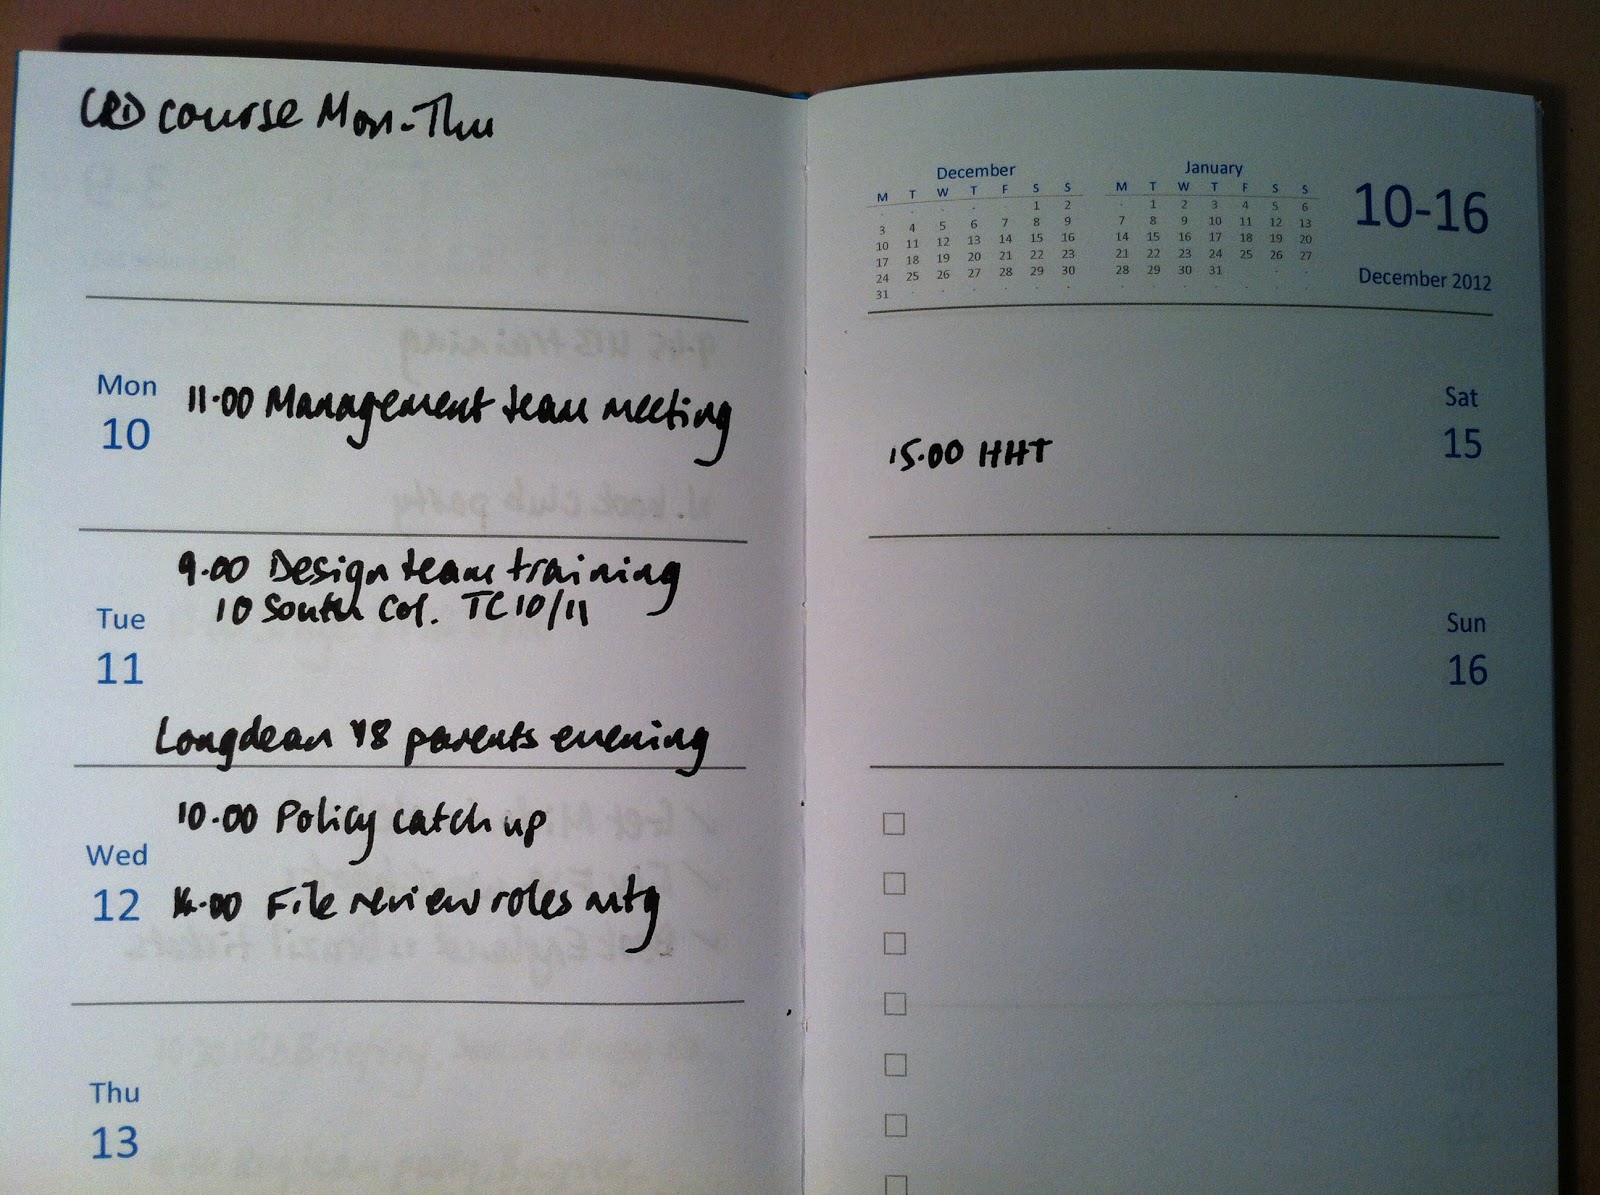 CRD course Mon-Thu
Mon
10
11.00 Management team meeting
Tue
11
9.00 Design team training
10 South Col. TC10/11
Longdean Y8 parents evening
Wed
12
10.00 Policy catch up
.00 File review roles mtg
Thu
13
December
M T W T F S S
. . . . . 1 2
3 4 5 6 7 8 9
10 11 12 13 14 15 16
17 18 19 20 21 22 23
24 25 26 27 28 29 30
31 . . . . . .
January
M T W T F S S
. 1 2 3 4 5 6
7 8 9 10 11 12 13
14 15 16 17 18 19 20
21 22 23 24 25 26 27
28 29 30 31 . . .
10-16
December 2012
Sat
15
15.00 HHT
Sun
16